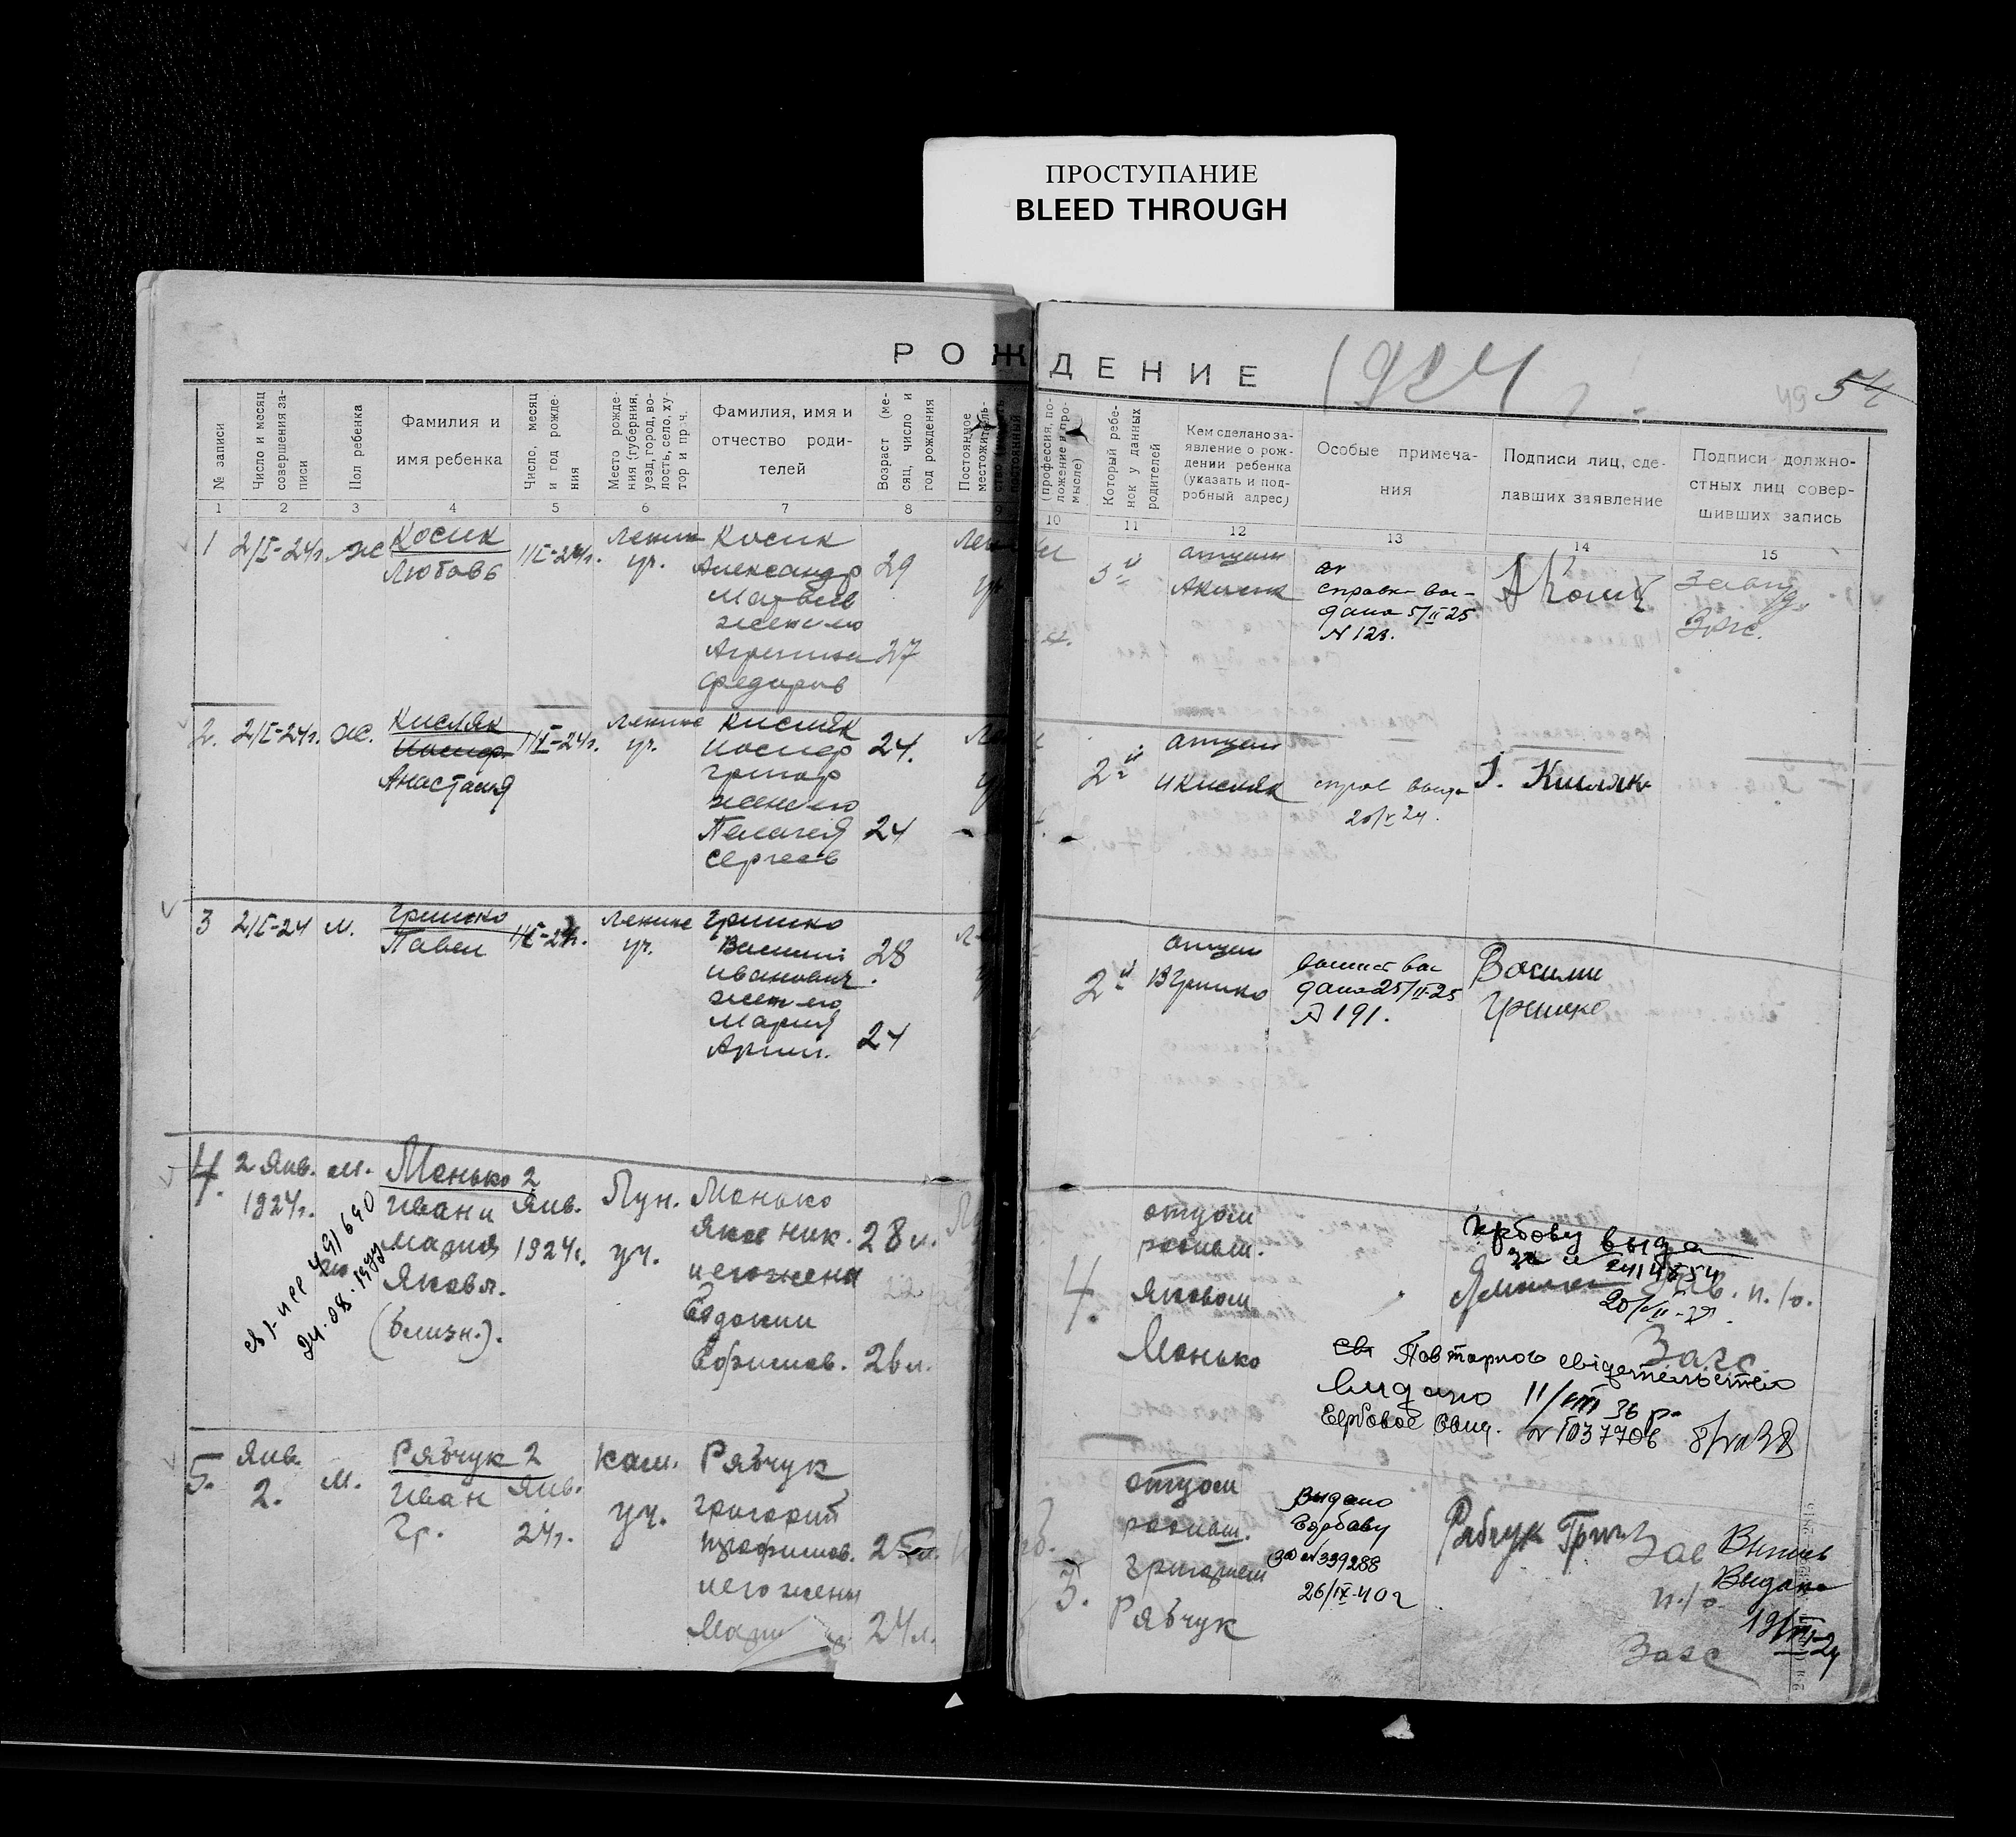 ПРОСТУПАНИЕ
BLEED THROUGH
РОЖДЕНИЕ 1924
49 54
№ записи
Число и месяц совершения за-
писи
Пол ребенка
Фамилия и
имя ребенка
Число, месяц
и год рожде-
ния
Место рожде-
ния (губерния,
уезд, город, во-
лость, село, ху-
тор и проч.
Фамилия, имя и
отчество роди-
телей
Возраст (ме-
сяц, число и
год рождения
Постоянное
местожитель-
(профессия, по-
ложение в про-
мысле)
Который ребе-
нок у данных
родителей
Кем сделано за-
явление о рож-
дении ребенка
(указать и под-
робный адрес)
Особые примеча-
ния
Подписи лиц, сде-
лавших заявление
Подписи должно-
стных лиц совер-
шивших запись
1 2 3 4 5 6 7 8 9 10 11 12 13 14 15
1
2/I-24г.
ж
Косик
Любовь
1/I-24г.
Ленин
уч.
Косик
Александр
Матвеев
жен его
Агрепина
Федоров
29
27
3й
отцом
АКосик
справка вы-
дана 5/II 25
N 123.
Загс.
2.
2/I-24г.
ж.
Кисляк
Иосиф
Анастасия
1/I-24г.
Ленинс
уч.
Кисляк
Иосиф
Григор
жен его
Пелагея
Сергеев
24.
24
2й
отцом
ИКисляк
справ выда
20/V 24.
І. Кисляк
3
2/I-24
м.
Гришко
Павел
1/I-24г.
Ленинс
уч.
Гришко
Василий
Иванович
жен его
Мария
28
24
2й
отцом
ВГришко
дана 25/II-25
N 191.
Василий
Гришко
4.
2 Янв.
1924г.
м.
24.08.1977
Менько
Иван и
Мария
Яковл.
(близн.).
2
Янв.
1924г.
Лун.
уч.
Монько
Яков Ник.
и его жена
Евдокии
Ефимов.
28 л.
26 л.
4.
отцом
Яковом
Монько
выда
20/VII-27
Загс.
Повторного свідетельство
видано 11/VIII 36 р.
Гербовое Свид. N 1037706
5.
Янв.
2.
м.
Рябчук
Иван
Гр.
2
Янв.
24г.
Кам.
уч.
Рябчук
Григорий
Трофимов.
и его жены
25л.
24л.
3.
отцом
Григорием
Рябчук
Выдано
Гербову
за N 339288
26/IX-40г
Рябчук Григ
Зав
п./о.
Загс
Выпись
Выдана